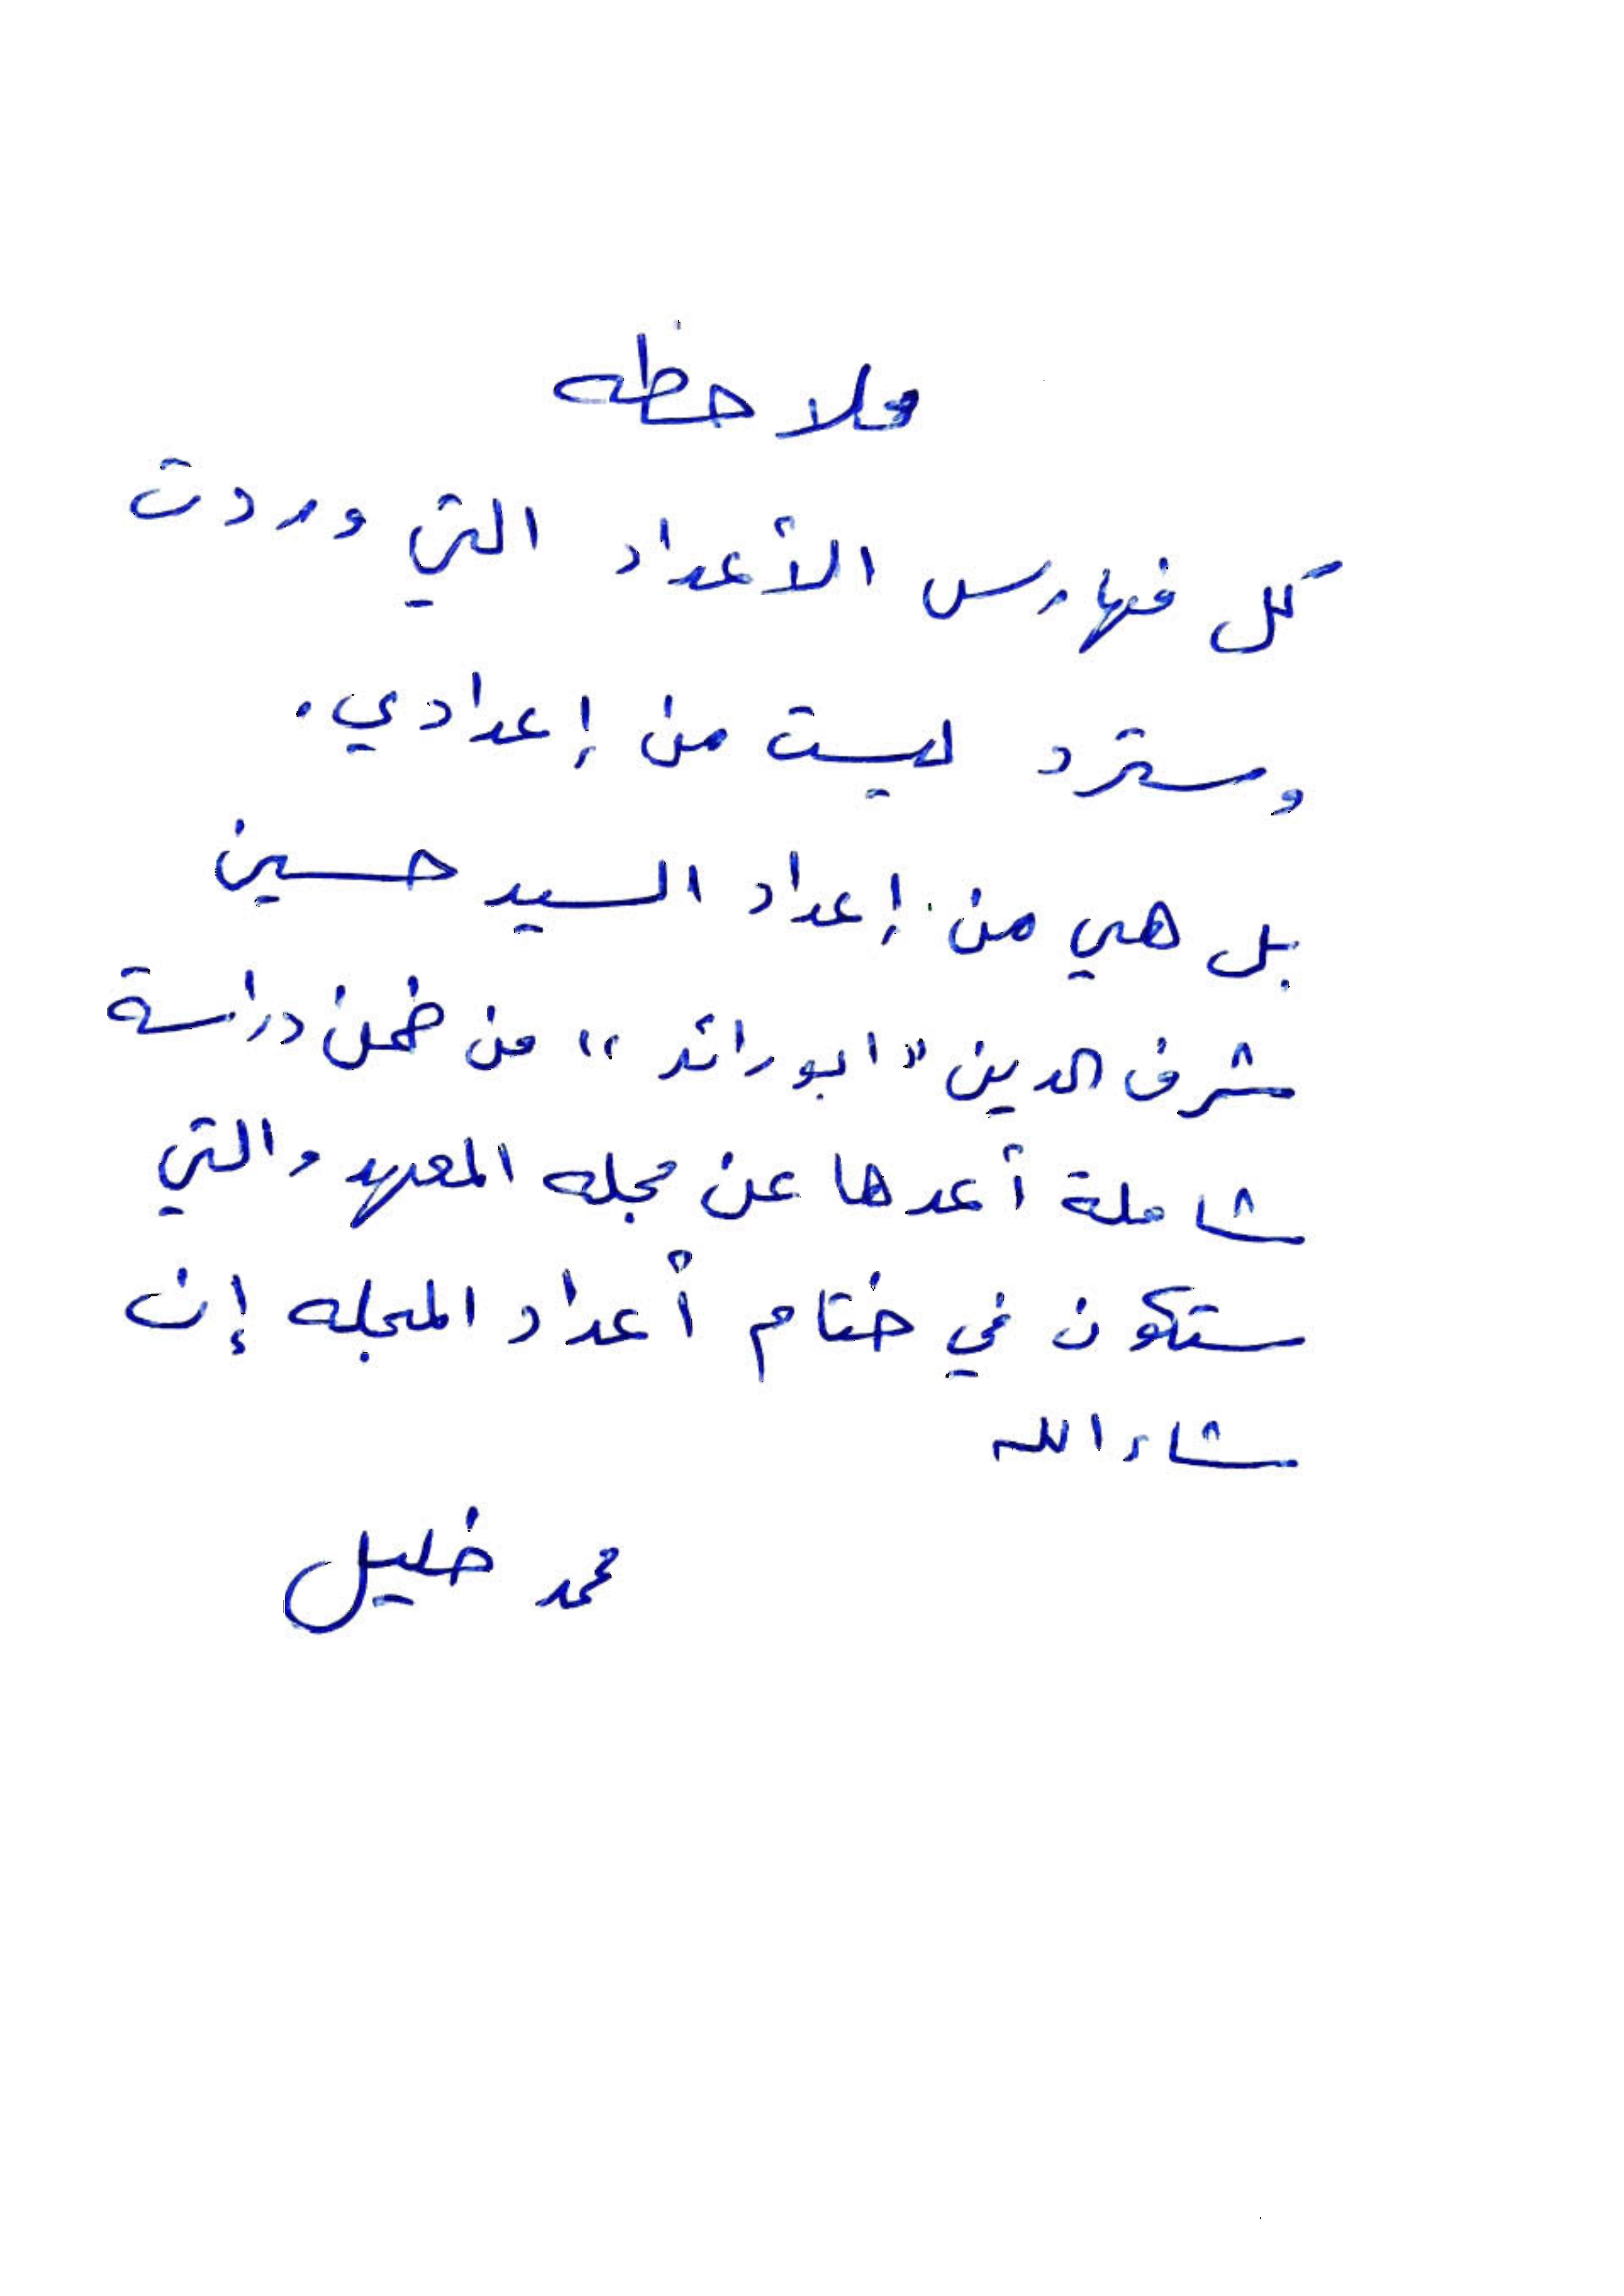 ملاحظه
كل فهارس الأعداد التي وردت
وسترد ليست من إعدادي.
بل هي من إعداد السيد حسين
شرف الدين "ابو رائد" من ضمن دراسة
شاملة أعدها عن مجله المعهد والتي
ستكون في ختام أعداد المجله إن
شاء الله
محمد خليل